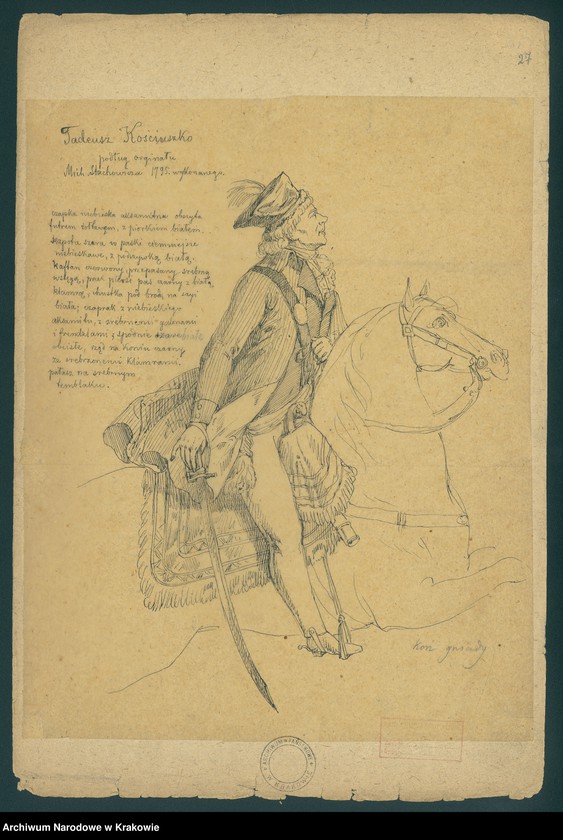 27
Tadeusz Kościuszko
podług orginału
Mich. Stachowicza 1795. wykonanego.
czapka niebieska aksamitna obszyta
futrem żółtawym, z piórkiem białem.
szara w paski ciemniejsze
niebieskawe, z podszywką białą.
Kaftan czerwony, przepasany srebrną
wstęgą, przez piersi pas czarny z białą
klamrą, chustka pod brodą na szyi
biała; czaprak z niebieskiego
aksamitu, z srebrnemi galonami
i frendzlami; spodnie
obcisłe, rząd na koniu czarny
ze srebrzonemi klamrami.
pałasz na srebrnym
temblaku.
koń gniady
Archiwum Narodowe w Krakowie